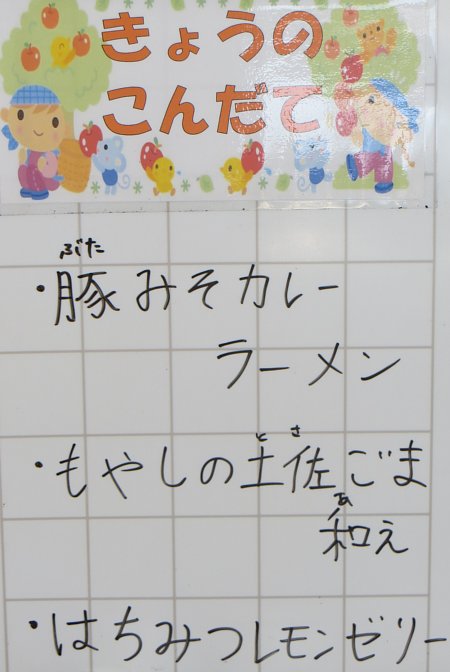 きょうの
こんだて
ぶた
・豚みそカレー
ラーメン
とさ
・もやしの土佐ごま
あ
和え
・はちみつレモンゼリー